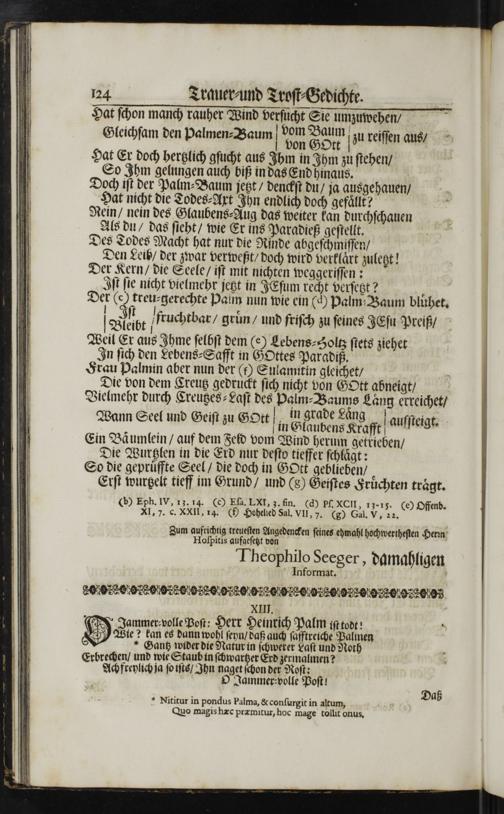 124 Trauer-und Trost-Gedichte.
Hat schon manch rauher Wind versucht Sie umzuwehen/
Gleichsam den Palmen-Baum | vom Baum | zu reissen aus/
von GOtt
Hat Er doch hertzlich gsucht aus Ihm in Ihm zu stehen/
So Ihm gelungen auch biß in das End hinaus.
Doch ist der Palm-Baum jetzt/ denckst du/ ja ausgehauen/
Hat nicht die Todes-Art Ihn endlich doch gefällt?
Nein/ nein des Glaubens-Aug das weiter kan durchschauen
Als du/ das sieht/ wie Er ins Paradieß gestellt.
Des Todes Macht hat nur die Rinde abgeschmissen/
Den Leib/ der zwar verweßt/ doch wird verklärt zuletzt!
Der Kern/ die Seele/ ist mit nichten weggerissen:
Ist sie nicht vielmehr jetzt in JEsum recht versetzt?
Der (c) treu-gerechte Palm nun wie ein (d) Palm-Baum blühet.
| Ist | fruchtbar/ grün/ und frisch zu seines JEsu Preiß/
Bleibt
Weil Er aus Ihme selbst dem (e) Lebens-Holtz stets ziehet
In sich den Lebens-Safft in GOttes Paradiß.
Frau Palmin aber nun der (f) Sulamitin gleichet/
Die von dem Creutz gedruckt sich nicht von GOtt abneigt/
Vielmehr durch Creutzes-Last des Palm-Baums Läng erreichet/
Wann Seel und Geist zu GOtt | in grade Läng | aufsteigt.
in Glaubens Krafft
Ein Bäumlein/ auf dem Feld vom Wind herum getrieben/
Die Wurtzlen in die Erd nur desto tieffer schlägt:
So die geprüffte Seel/ die doch in GOtt geblieben/
Erst wurtzelt tieff im Grund/ und (g) Geistes Früchten trägt.
(b) Eph. IV, 13. 14. (c) Esa. LXI, 3. fin. (d) Ps. XCII, 13-15. (e) Offenb.
XI, 7. c. XXII, 14. (f) Hohelied Sal. VII, 7. (g) Gal. V, 22.
Zum aufrichtig treuesten Angedencken seines ehmahl hochwerthesten Herrn
Hospitis aufgesetzt von
Theophilo Seeger, damahligen
Informat.
XIII.
O Jammer-volle Post: Herr Heinrich Palm ist todt!
Wie? kan es dann wohl seyn/ daß auch safftreiche Palmen
* Gantz wider die Natur in schwerer Last und Noth
Erbrechen/ und wie Staub in schwartzer Erd zermalmen?
Ach freylich ja so ists/ Ihn naget schon der Rost:
O Jammer-volle Post!
Daß
* Nititur in pondus Palma, & consurgit in altum,
Quo magis hæc præmitur, hoc mage tollit onus.